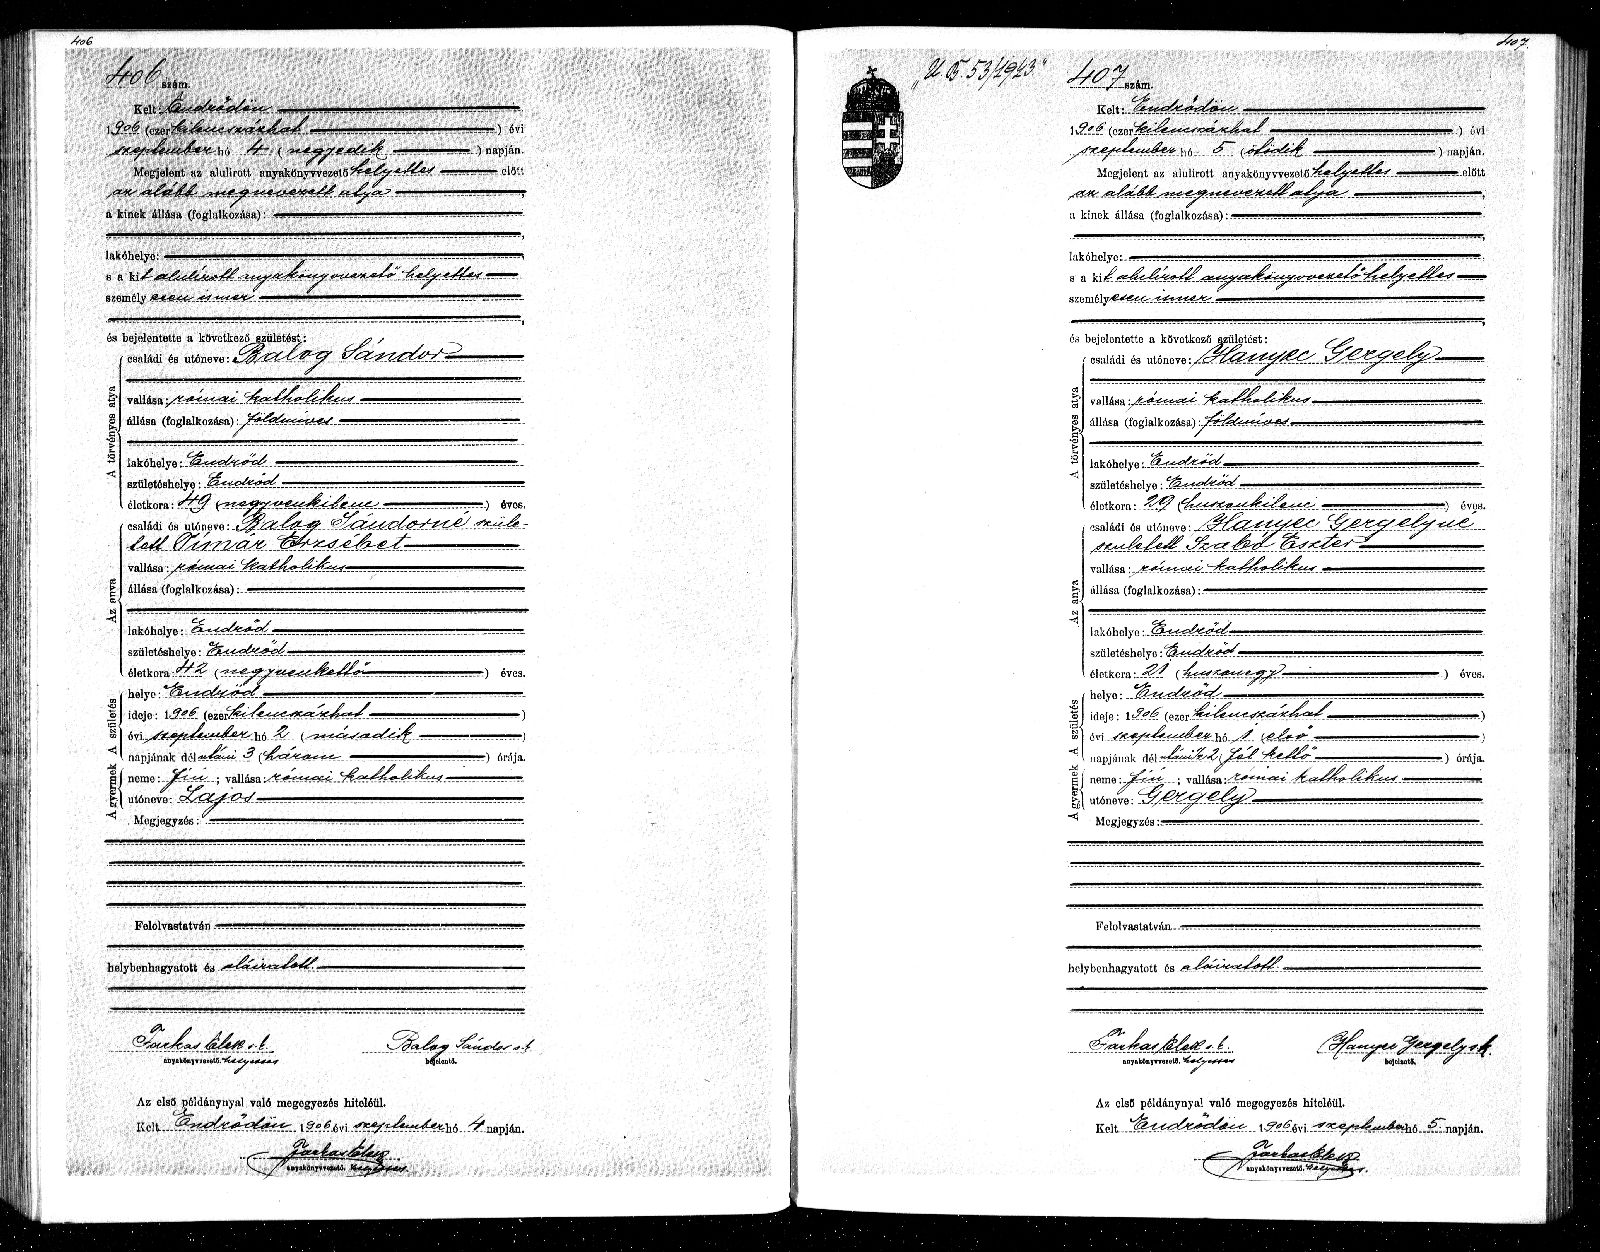 406
406 szám.
Kelt Endrődön
1906 (ezer kilencszázhat) évi
szeptember hó 4 (negyedik) napján.
Megjelent az alulirott anyakönyvvezető helyettes előtt
az alább megnevezett atya,
a kinek állása (foglalkozása):
lakóhelye:
s a kit alulírott anyakönyvvezető helyettes
személyesen ismer
és bejelentette a következő születést:
A törvényes atya
családi és utóneve: Balog Sándor
vallása: római katholikus
állása (foglalkozása): földmíves
lakóhelye: Endrőd
születéshelye: Endrőd
életkora: 49 (negyvenkilenc) éves.
Az anya
családi és utóneve: Balog Sándorné szüle-
tett Tímár Erzsébet
vallása: római katholikus
állása (foglalkozása):
lakóhelye: Endrőd
születéshelye: Endrőd
életkora 42 (negyvenkettő) éves.
A születés
helye: Endrőd
ideje: 1906 (ezer kilencszázhat)
évi szeptember hó 2 (második)
napjának dél utáni 3 (három) órája.
A gyermek
neme: fiu; vallása: római katholikus
utóneve: Lajos
Megjegyzés:
Felolvastatván
helybenhagyatott és aláiratott.
Farkas Elek s.k. Balog Sándor s.k.
anyakönyvvezető. helyettes bejelentő.
Az első példánynyal való megegyezés hiteléül.
Kelt Endrődön 1906 évi szeptember hó 4 napján.
Farkas Elek
anyakönyvvezető. helyettes.
407.
407 szám.
Kelt: Endrődön
1906 (ezer kilencszázhat) évi
szeptember hó 5 (ötödik) napján.
Megjelent az alulirott anyakönyvvezető helyettes előtt
az alább megnevezett atya,
a kinek állása (foglalkozása):
lakóhelye:
s a kit alulírott anyakönyvvezető helyettes
személyesen ismer
és bejelentette a következő születést:
A törvényes atya
családi és utóneve: Hanyec Gergely
vallása: római katholikus
állása (foglalkozása): földmíves
lakóhelye: Endrőd
születéshelye: Endrőd
életkora: 29 (huszonkilenc) éves.
Az anya
családi és utóneve: Hanyec Gergelyné
született Szabó Eszter
vallása: római katholikus
állása (foglalkozása):
lakóhelye: Endrőd
születéshelye: Endrőd
életkora: 21 (huszonegy) éves.
A születés
helye: Endrőd
ideje: 1906 (ezer kilencszázhat)
évi szeptember hó 1 (első)
napjának dél utáni ½2 (fél kettő) órája.
A gyermek
neme: fiu; vallása: római katholikus
utóneve: Gergely
Megjegyzés:
Felolvastatván
helybenhagyatott és aláiratott.
Farkas Elek s.k. Hanyec Gergely sk.
anyakönyvvezető. helyettes bejelentő.
Az első példánynyal való megegyezés hiteléül.
Kelt Endrődön 1906 évi szeptember hó 5 napján.
Farkas Elek
anyakönyvvezető. helyettes.